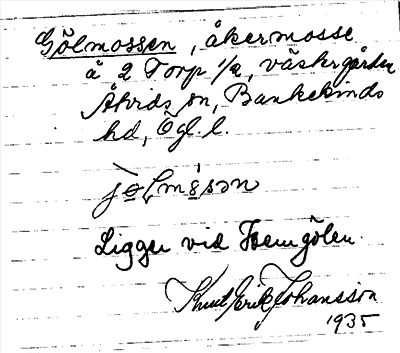 Gölmossen, åkermosse
å 2 Torp 1/2, västergården
Åtvids sn, Bankekinds
hd, Ögl. l.
Ligger vid Hemgölen.
Knut Erik Johansson
1935